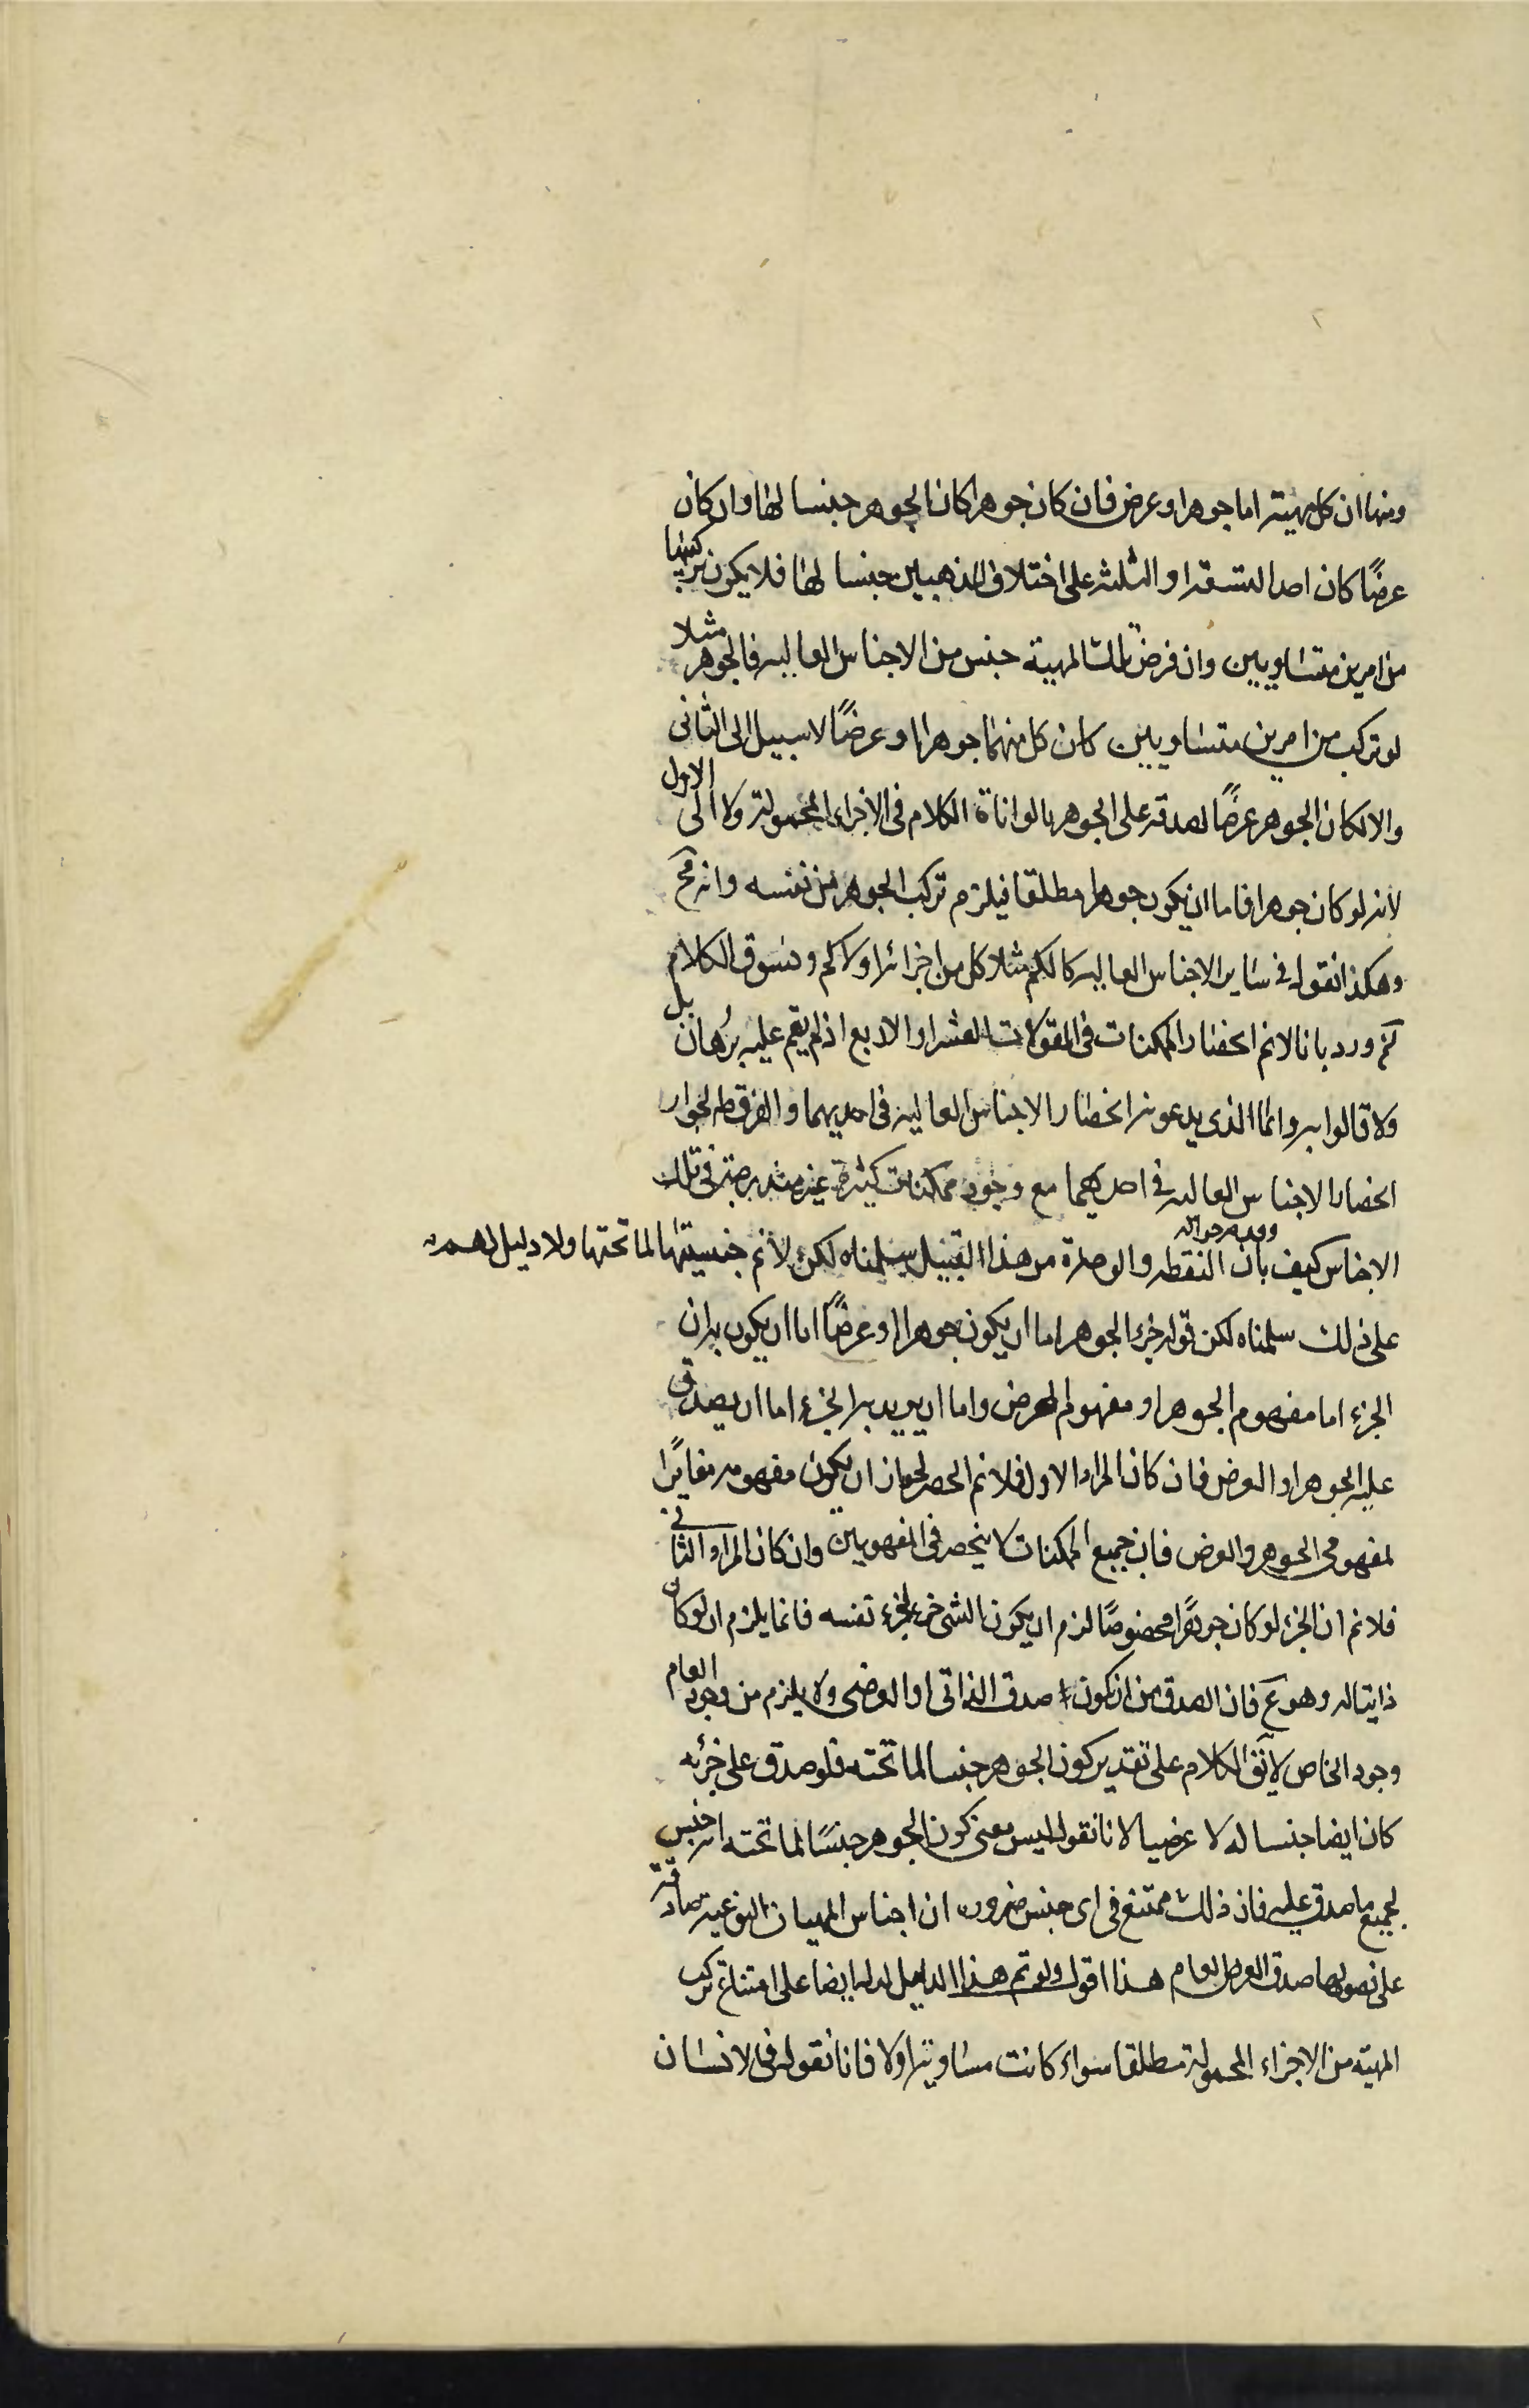 ومنها ان كل مهية اما جوهر او عرض فان كان جوهرا كان الجوهر جنسا لها وان كان
عرضًا كان احد التسعة او الثلثة على اختلاف المذهبين جنسا لها فلا يكون تركيبها
من امرين متساويين وان فرض تلك المهية جنس من الاجناس العالية فالجوهر مثلا
لو تركب من امرين متساويين كان كل منهما جوهرا او عرضًا لا سبيل الى الثاني
والا لكان الجوهر عرضًا لصدقه على الجوهر بالمواطاة الكلام فى الاجزاء المحمولة ولا الى الاول
لانه لو كان جوهرا فاما ان يكون جوهرا مطلقا فيلزم تركب الجوهر من نفسه وانه مح
وهكذا نقول في ساير الاجناس العالية كالكم مثلا كل من اجزائه اولا كم ونسوق الكلام
ورد بانا لا نم انحصار الممكنات فى المقولات العشر او الاربع اذ لم يقم عليه برهان بل
ولا قالوا به وانما الذى يدعونه انحصار الاجناس العالية فى احديهما والفرق ظ لجواز
انحصار الاجناس العاليه في احديهما مع وجود ممكنات كثيرة غير مندرجة فى تلك
الاجناس كيف بان النقطه والوحدة من هذا القبيل سلمناه لكن لا نم جنسيتها لما تحتها ولا دليل لهم
على ذلك سلمناه لكن قوله جزء الجوهر اما ان يكون جوهرا او عرضًا اما ان يكون به ان
الجزء اما مفهوم الجوهر او مفهوم العرض واما ان يريد به الجزء اما ان يصدق
عليه الجوهر او العرض فان كان المراد الاول فلا نم الحصر لجواز ان يكون مفهومه مغايرًا
لمفهومى الجوهر والعرض فان جميع الممكنات لا ينحصر فى المفهومين وان كان المراد الثانى
فلا نم ان الجزء لو كان جوهرًا مخصوصًا لزم ان يكون الشى جزء لجزء نفسه فانما يلزم ان لو كان
ذاتيا له وهو ع فان الصدق من ان كون صدق الذاتى او العرضى ولا يلزم من وجود العام
وجود الخاص لا يق الكلام على تقدير كون الجوهر جنسا لما تحته فلو صدق على جزئه
كان ايضا جنسا له لا عرضيا لانا نقول ليس معنى كون الجوهر جنسًا لما تحته انه جنس
لجميع ما صدق عليه فان ذلك ممتنع فى اى جنس ضرورة ان اجناس المهيات النوعية صادقة
على فصولها صدق العرض العام هذا اقول ولو تم هذا الدليل لدل ايضا على امتناع تركب
المهية من الاجزاء المحمولة مطلقا سواء كانت مساوية اولا فانا نقول فى الانسان